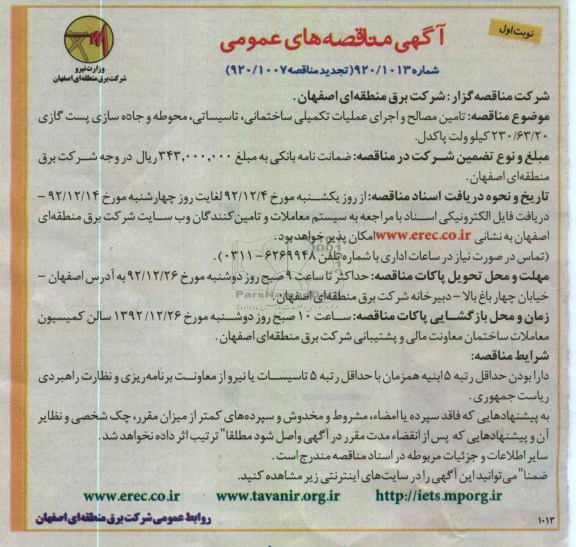 نوبت اول
آگهی مناقصه‌های عمومی
شماره ۹۲۰/۱۰۱۳ (تجدید مناقصه ۹۲۰/۱۰۰۷)
وزارت نیرو
شرکت برق منطقه‌ای اصفهان
شرکت مناقصه گزار: شرکت برق منطقه‌ای اصفهان.
موضوع مناقصه: تامین مصالح و اجرای عملیات تکمیلی ساختمانی، تاسیساتی، محوطه و جاده سازی پست گازی
۲۳۰/۶۳/۲۰ کیلو ولت پاکدل.
مبلغ و نوع تضمین شرکت در مناقصه: ضمانت نامه بانکی به مبلغ ۳۴۳,۰۰۰,۰۰۰ ریال در وجه شرکت برق
منطقه‌ای اصفهان.
تاریخ و نحوه دریافت اسناد مناقصه: از روز یکشنبه مورخ ۹۲/۱۲/۴ لغایت روز چهارشنبه مورخ ۹۲/۱۲/۱۴ –
دریافت فایل الکترونیکی اسناد با مراجعه به سیستم معاملات و تامین‌کنندگان وب سایت شرکت برق منطقه‌ای
اصفهان به نشانی www.erec.co.ir امکان پذیر خواهد بود.
(تماس در صورت نیاز در ساعات اداری با شماره تلفن ۶۲۶۹۹۴۸-۰۳۱۱).
مهلت و محل تحویل پاکات مناقصه: حداکثر تا ساعت ۹ صبح روز دوشنبه مورخ ۹۲/۱۲/۲۶ به آدرس اصفهان –
خیابان چهارباغ بالا – دبیرخانه شرکت برق منطقه‌ای اصفهان.
زمان و محل بازگشایی پاکات مناقصه: ساعت ۱۰ صبح روز دوشنبه مورخ ۱۳۹۲/۱۲/۲۶ سالن کمیسیون
معاملات ساختمان معاونت مالی و پشتیبانی شرکت برق منطقه‌ای اصفهان.
شرایط مناقصه:
دارا بودن حداقل رتبه ۵ ابنیه همزمان با حداقل رتبه ۵ تاسیسات یا نیرو از معاونت برنامه‌ریزی و نظارت راهبردی
ریاست جمهوری.
به پیشنهادهایی که فاقد سپرده یا امضاء، مشروط و مخدوش و سپرده‌های کمتر از میزان مقرر، چک شخصی و نظایر
آن و پیشنهادهایی که پس از انقضاء مدت مقرر در آگهی واصل شود مطلقا" ترتیب اثر داده نخواهد شد.
سایر اطلاعات و جزئیات مربوطه در اسناد مناقصه مندرج است.
ضمنا" می‌توانید این آگهی را در سایت‌های اینترنتی زیر مشاهده کنید.
www.erec.co.ir www.tavanir.org.ir http://iets.mporg.ir
روابط عمومی شرکت برق منطقه‌ای اصفهان
۱۰۱۳